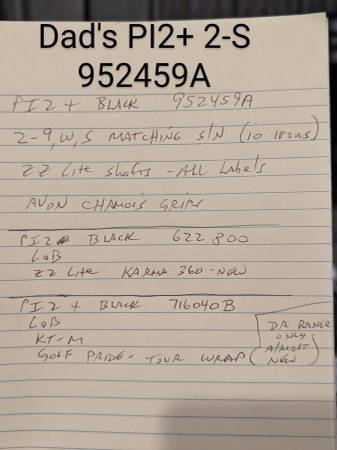 Dad's PI2+ 2-S
952459A
PI2 + BLACK 952459A
2-9, W, S MATCHING S/N (10 irons)
ZZ Lite shafts - ALL Labels
AVON CHAMOIS GRIPS
PI2 BLACK 622800
LOB
ZZ Lite KARMA 360 - NEW
PI2 + BLACK 716040B
LOB
KT-M
GOLF PRIDE - TOUR WRAP (
DR RANGE
ONLY
ALMOST
NEW )